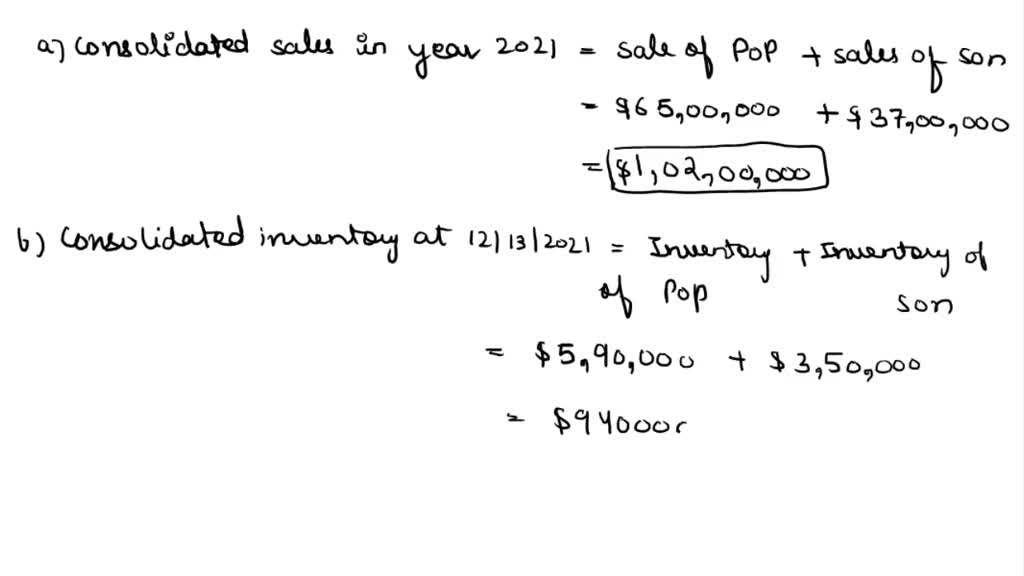 a) Consolidated sales in year 2021 = sale of Pop + sales of son
= $65,00,000 + $37,00,000
= $1,02,00,000
b) Consolidated inventory at 12/13/2021 = Inventory + Inventory of
of Pop son
= $5,90,000 + $3,50,000
= $940000